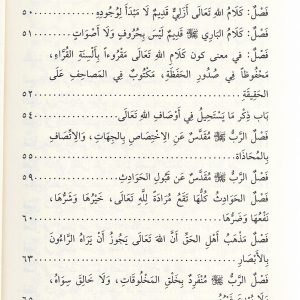 فَصْلٌ: كَلَامُ اللهِ تَعَالَى أَزَلِيٌّ قَدِيمٌ لَا مَبْدَأَ لِوُجُودِهِ ........ ٥٠
فَصْلٌ: كَلَامُ البَارِي ﷻ قَدِيمٌ لَيْسَ بِحُرُوفٍ وَلَا أَصْوَاتٍ ........ ٥١
فَصْلٌ: في معنى كون كَلَامِ اللهِ تَعَالَى مَقْرُوءًا بِأَلْسِنَةِ القُرَّاءِ،
مَحْفُوظًا فِي صُدُورِ الحَفَظَةِ، مَكْتُوبٌ فِي المَصَاحِفِ عَلَى
الحَقِيقَةِ ........ ٥٢
بَابُ ذِكْرِ مَا يَسْتَحِيلُ فِي أَوْصَافِ اللهِ تَعَالَى ........ ٥٤
فَصْلٌ الرَّبُّ ﷻ مُقَدَّسٌ عَنِ الِاخْتِصَاصِ بِالجِهَاتِ، وَالِاتِّصَافِ
بِالمُحَاذَاةِ ........ ٥٥
فَصْلٌ الرَّبُّ ﷻ مُقَدَّسٌ عَنْ قَبُولِ الحَوَادِثِ ........ ٥٩
فَصْلٌ الحَوَادِثُ كُلُّهَا تَقَعُ مُرَادَةً لِلَّهِ تَعَالَى، خَيْرُهَا وَشَرُّهَا،
نَفْعُهَا وَضَرُّهَا ........ ٦٠
فَصْلٌ مَذْهَبُ أَهْلِ الحَقِّ أَنَّ اللهَ تَعَالَى يَجُوزُ أَنْ يَرَاهُ الرَّاءُونَ
بِالأَبْصَارِ ........ ٦٣
فَصْلٌ الرَّبُّ ﷻ مُنْفَرِدٌ بِخَلْقِ المَخْلُوقَاتِ، وَلَا خَالِقَ سِوَاهُ،